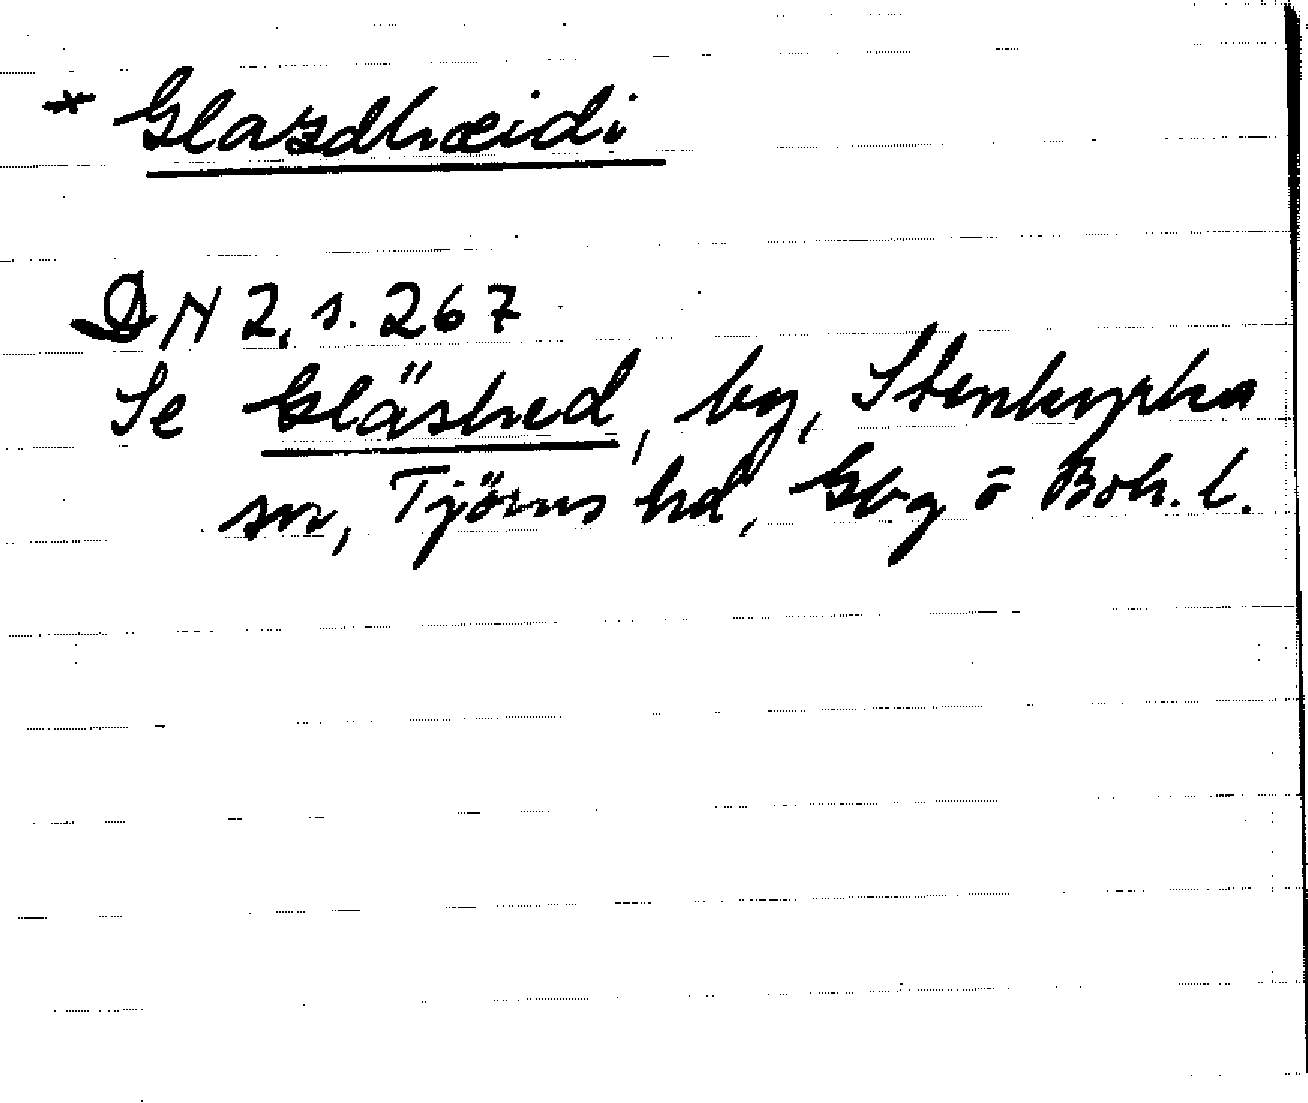 * Glazdhæidi
DN 2, s. 267
Se Gläshed, by, Stenkyrka
sn, Tjörns hd, Gbg o Boh. l.